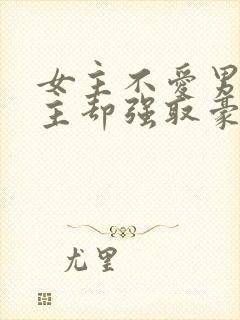 女主不爱男
主却强取豪
尤里